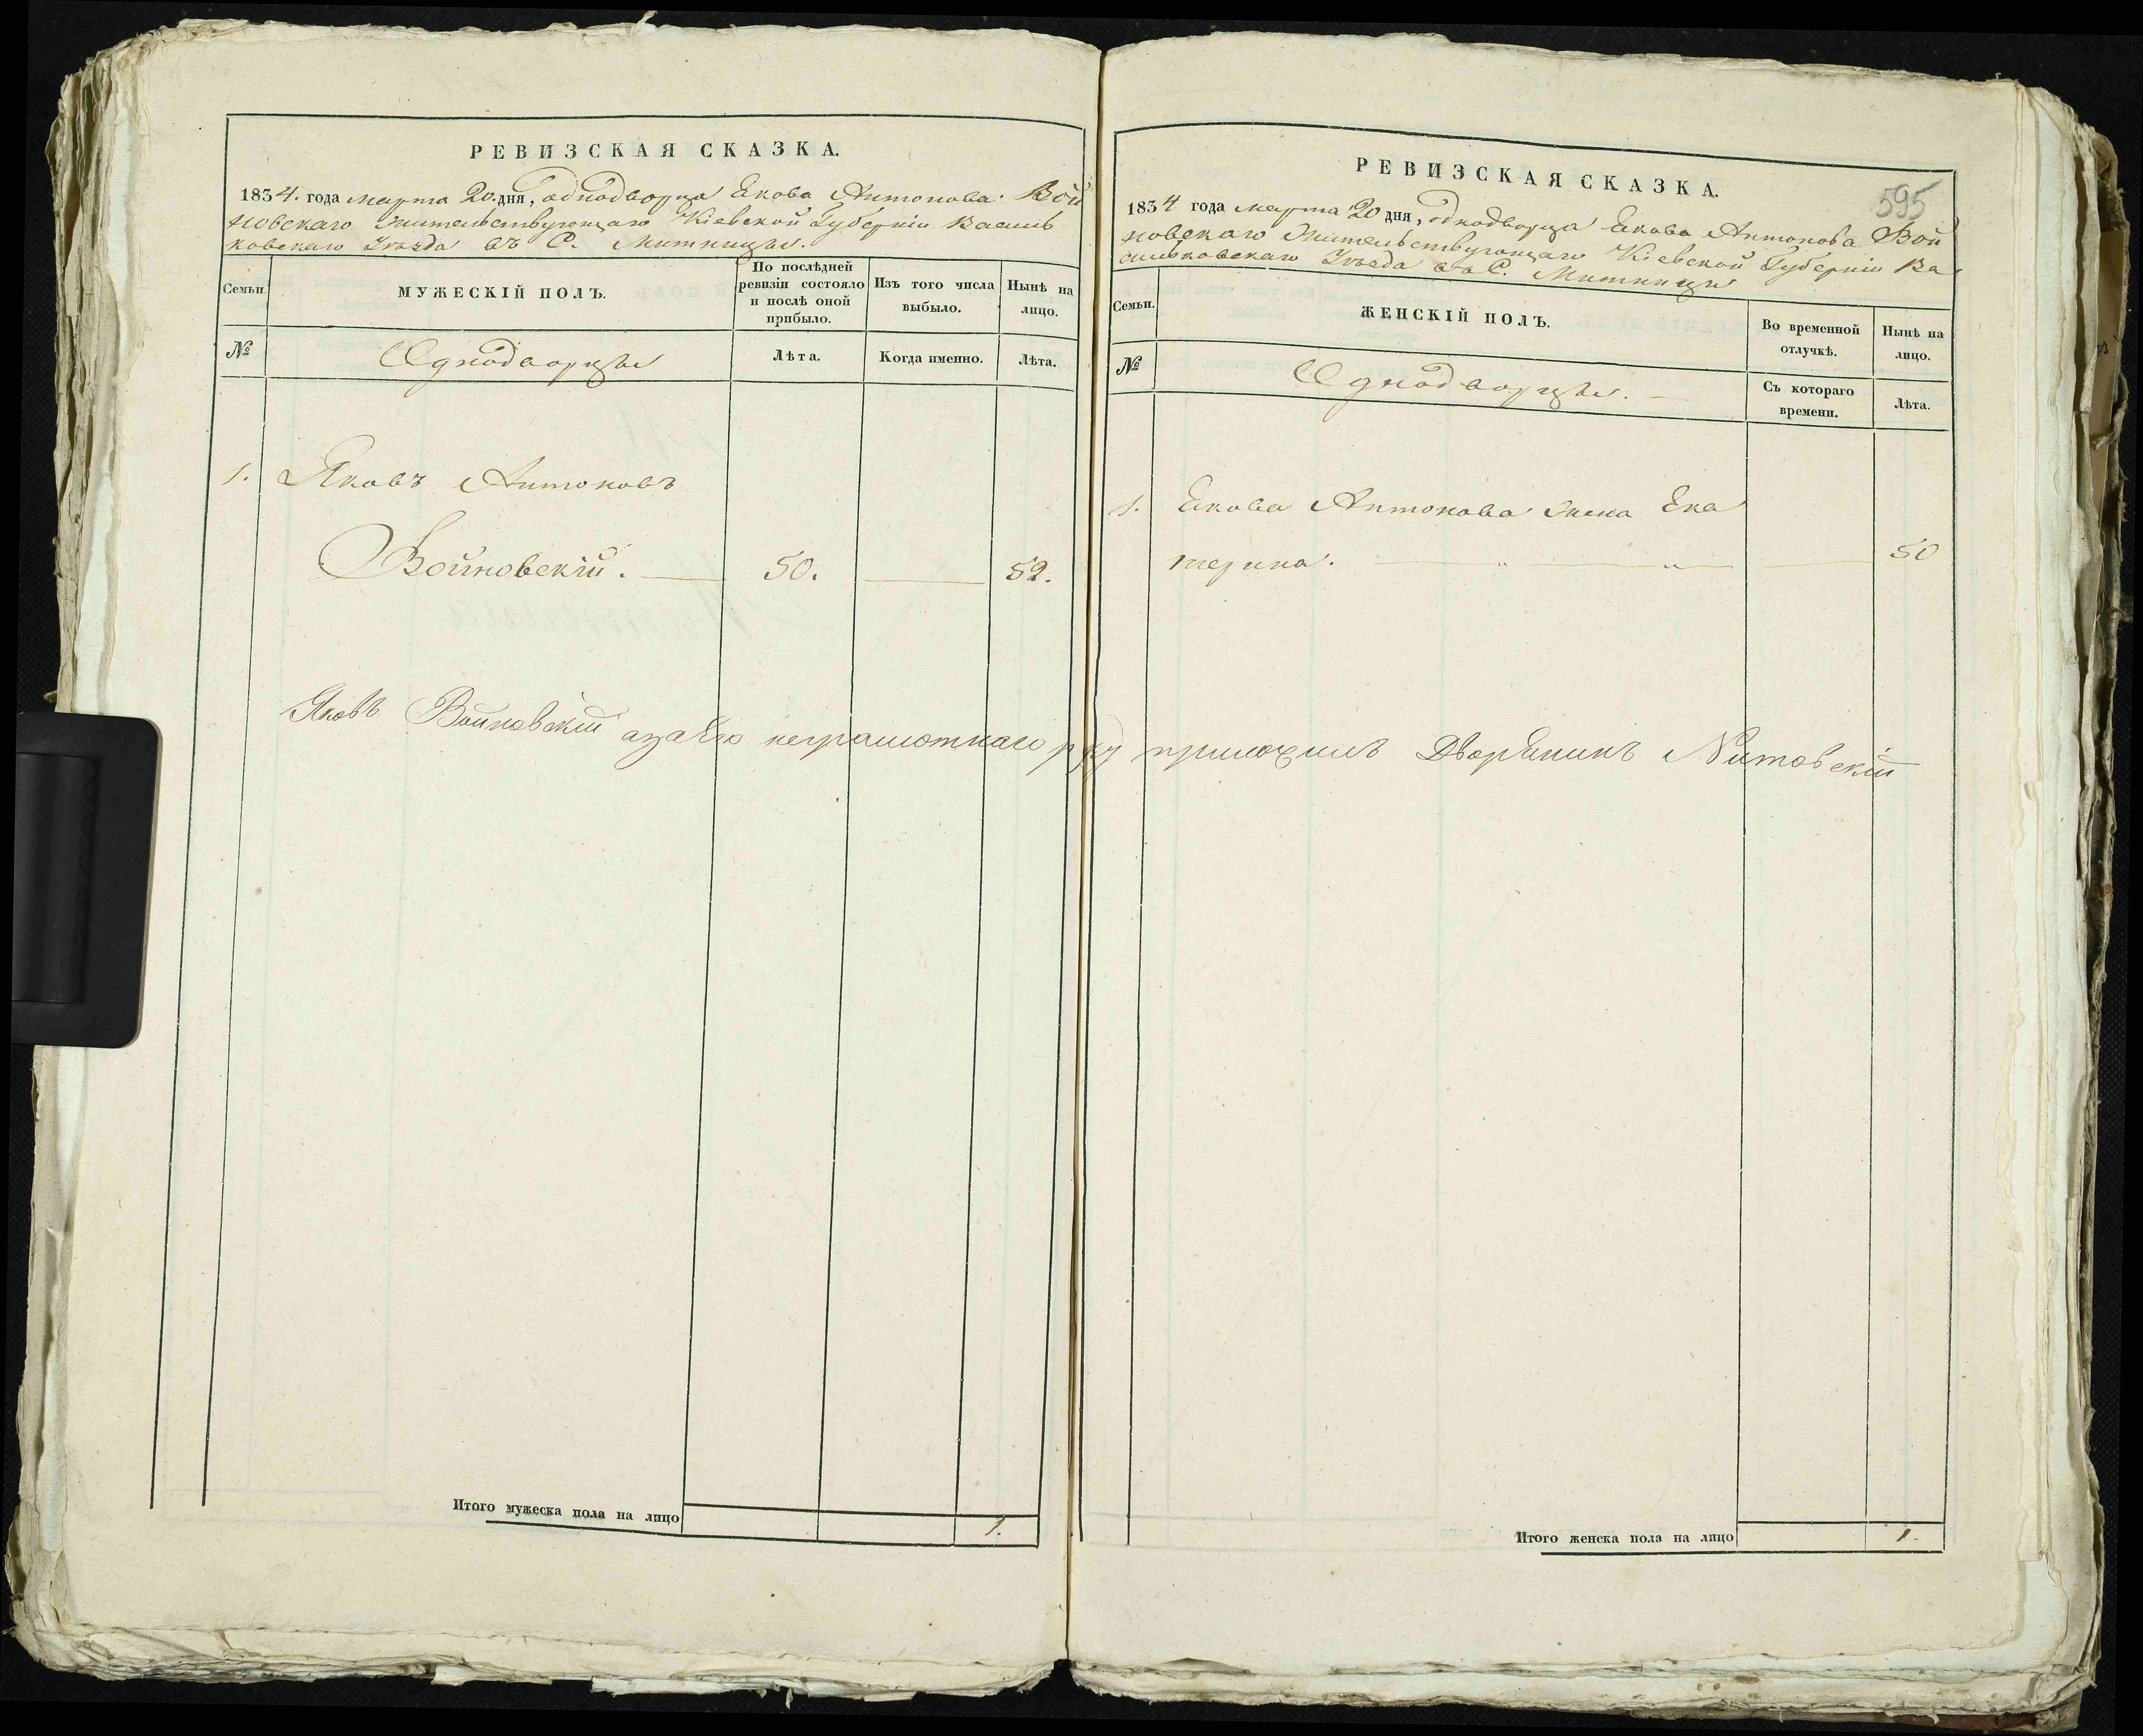 РЕВИЗСКАЯ СКАЗКА.
1834. года марта 20. дня, однодворца Якова Антонова Вой
новскаго жительствующаго Кіевской Губерніи Василь
ковскаго Уѣзда въ С. Митницы.
Семьи.
МУЖЕСКІЙ ПОЛЪ.
По послѣдней
ревизіи состояло
и послѣ оной
прибыло.
Изъ того числа
выбыло.
Нынѣ на
лицо.
№
Однодворцы
Лѣта.
Когда именно.
Лѣта.
1. Яковъ Антоновъ
Войновскій. 50. 52.
Яковъ Войновскій азанего неграмотнаго руку приложилъ Дворянинъ
Итого мужеска пола на лицо 1.
595
РЕВИЗСКАЯ СКАЗКА.
1834 года марта 20 дня, однодворца Якова Антонова Вой
новскаго жительствующаго Кіевской Губерніи Ва
сильковскаго Уѣзда въ С. Митницы
Семьи.
ЖЕНСКІЙ ПОЛЪ.
Во временной
отлучкѣ.
Нынѣ на
лицо.
№
Однодворцы.
Съ котораго
времени.
Лѣта.
1. Якова Антонова жена Ека
терина. 50
Итого женска пола на лицо 1.